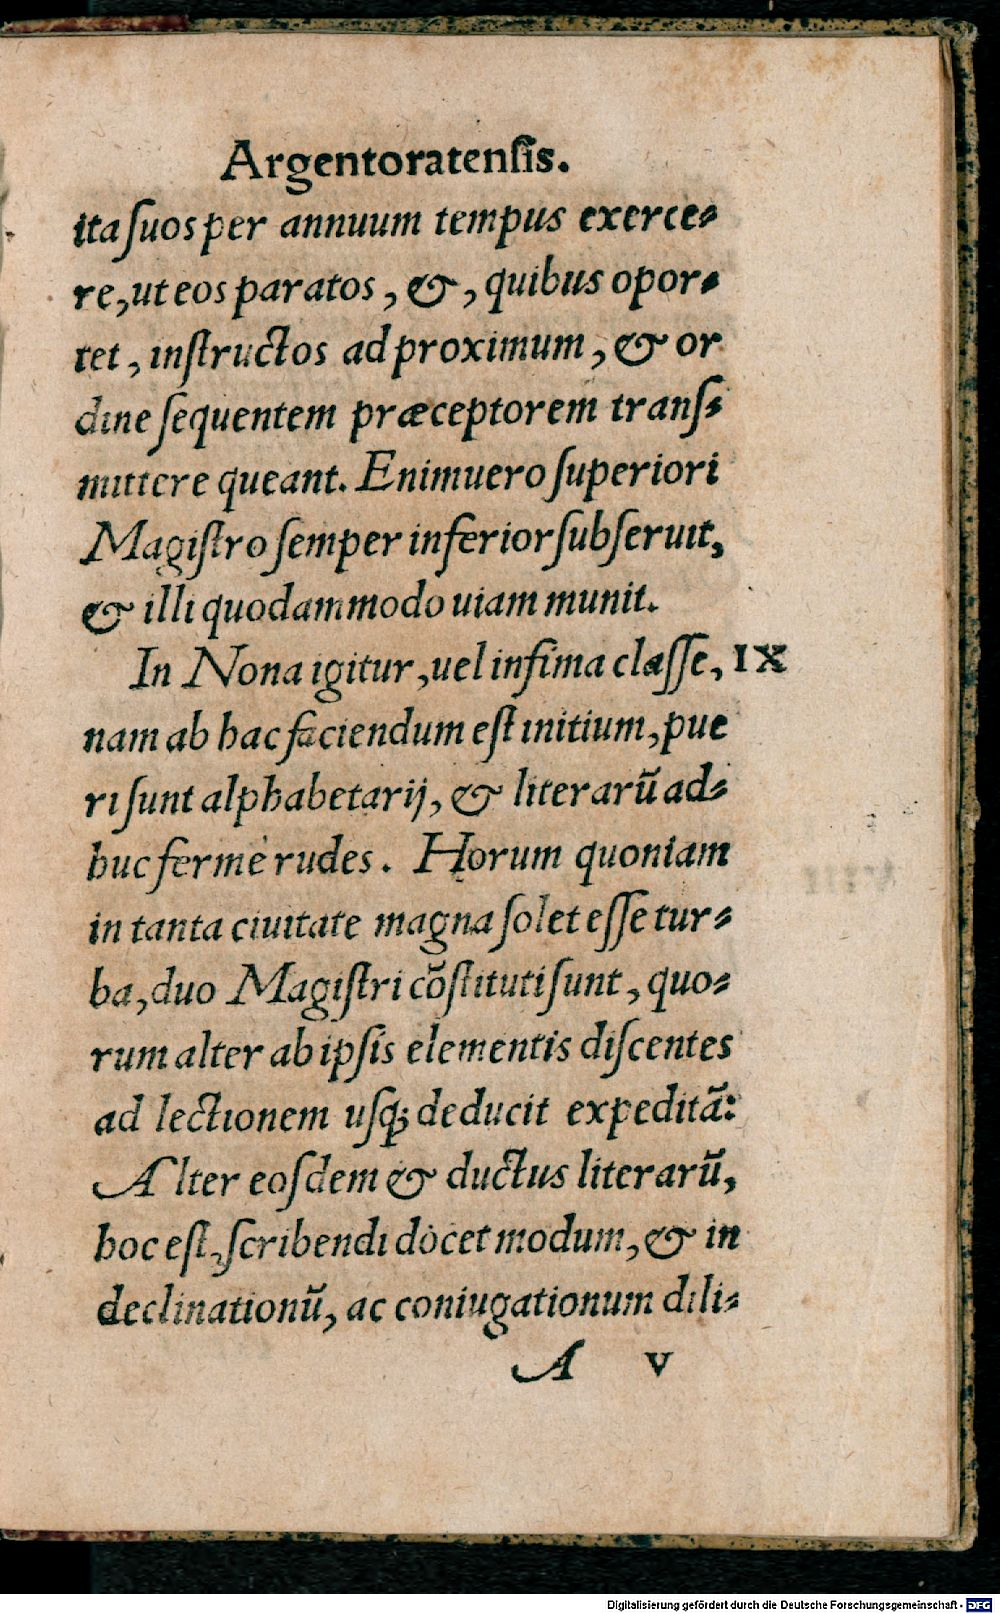 Argentoratensis.
ita suos per annuum tempus exerce-
re, ut eos paratos, &, quibus opor-
tet, instructos ad proximum, & or
dine sequentem præceptorem trans-
mittere queant. Enimuero superiori
Magistro semper inferior subseruit,
& illi quodammodo uiam munit.
In Nona igitur, uel infima classe, IX
nam ab hac faciendum est initium, pue
ri sunt alphabetarij, & literarũ ad-
huc fermè rudes. Horum quoniam
in tanta ciuitate magna solet esse tur-
ba, duo Magistri cõstituti sunt, quo-
rum alter ab ipsis elementis discentes
ad lectionem usq; deducit expeditã:
Alter eosdem & ductus literarũ,
hoc est, scribendi docet modum, & in
declinationũ, ac coniugationum dili-
A v
Digitalisierung gefördert durch die Deutsche Forschungsgemeinschaft - DFG